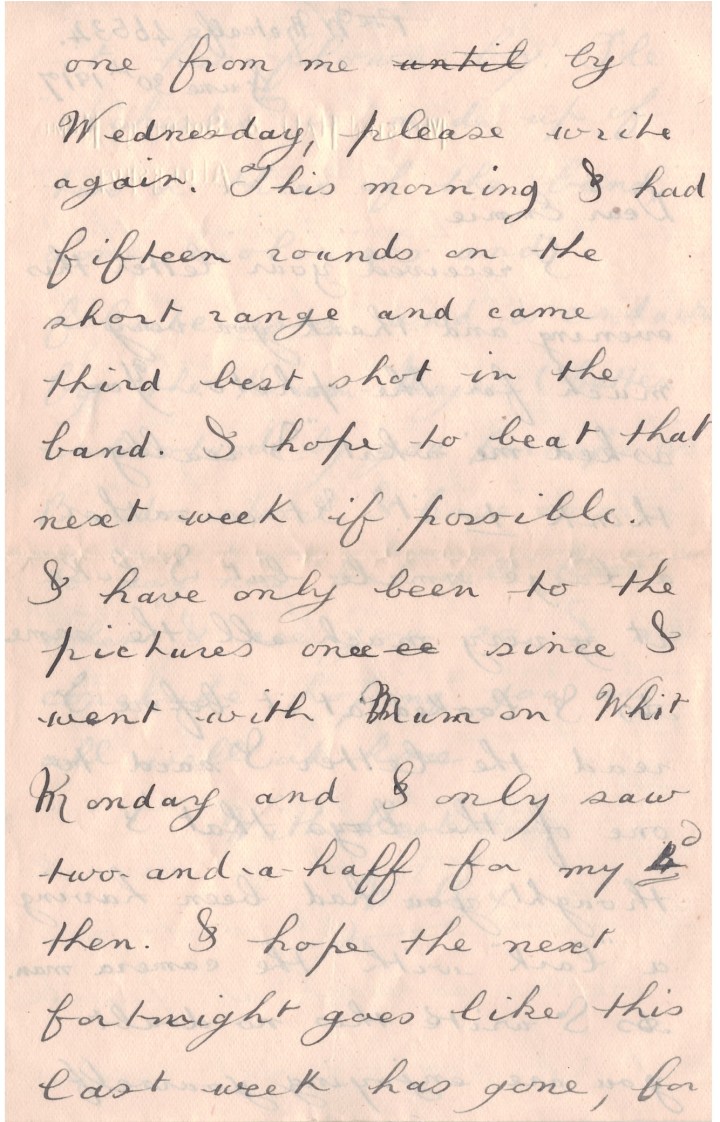 one from me until by
Wednesday, please write
again. This morning I had
fifteen rounds on the
short range and came
third best shot in the
band. I hope to beat that
next week if possible.
I have only been to the
pictures once since I
went with Mum on Whit
Monday and I only saw
two-and-a-haff for my 4d
then. I hope the next
fortnight goes like this
last week has gone, for